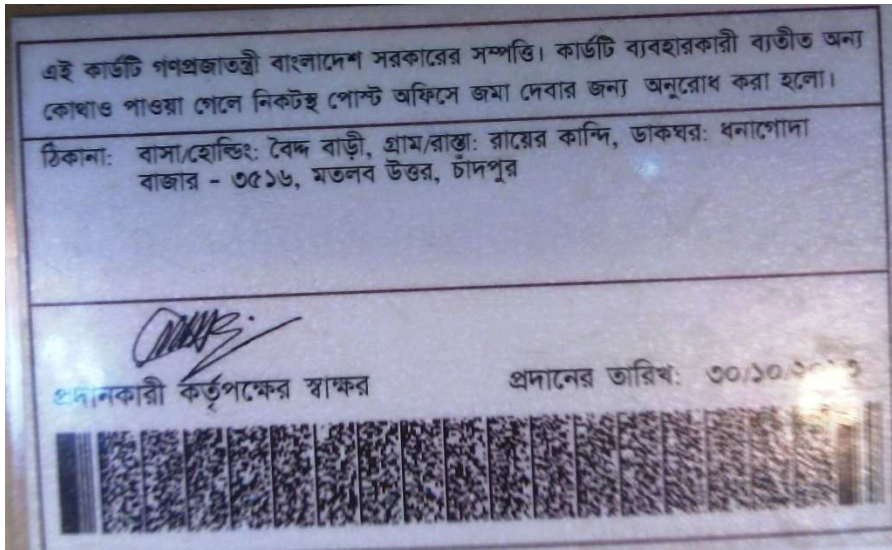 এই কার্ডটি গণপ্রজাতন্ত্রী বাংলাদেশ সরকারের সম্পত্তি। কার্ডটি ব্যবহারকারী ব্যতীত অন্য
কোথাও পাওয়া গেলে নিকটস্থ পোস্ট অফিসে জমা দেবার জন্য অনুরোধ করা হলো।
ঠিকানা: বাসা/হোল্ডিং: বৈদ্দ বাড়ী, গ্রাম/রাস্তা: রায়ের কান্দি, ডাকঘর: ধনাগোদা
বাজার - ৩৫১৬, মতলব উত্তর, চাঁদপুর
প্রদানকারী কর্তৃপক্ষের স্বাক্ষর
প্রদানের তারিখ: ৩০/১০/